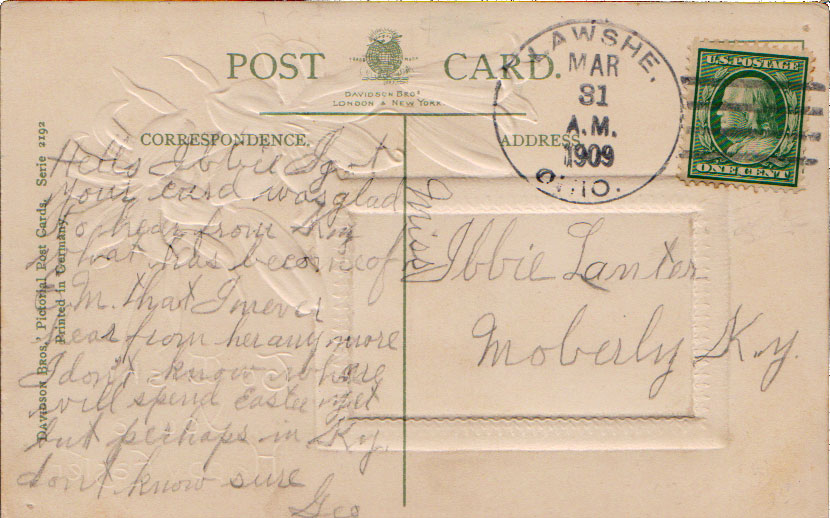 POST CARD.
DAVIDSON BROS
LONDON & NEW YORK
LAWSHE,
MAR
31
A.M.
1909
OHIO.
U.S. POSTAGE
ONE CENT
CORRESPONDENCE.
ADDRESS
DAVIDSON BROS.' Pictorial Post Cards. Serie 2192
Printed in Germany.
Hello Ibbie I got
your card was glad
to hear from Ky
what has become of
M. that I never
hear from her any more
I don't know where
I will spend Easter yet
but perhaps in Ky.
don't know sure
Geo
Miss Ibbie Lanter
Moberly Ky.